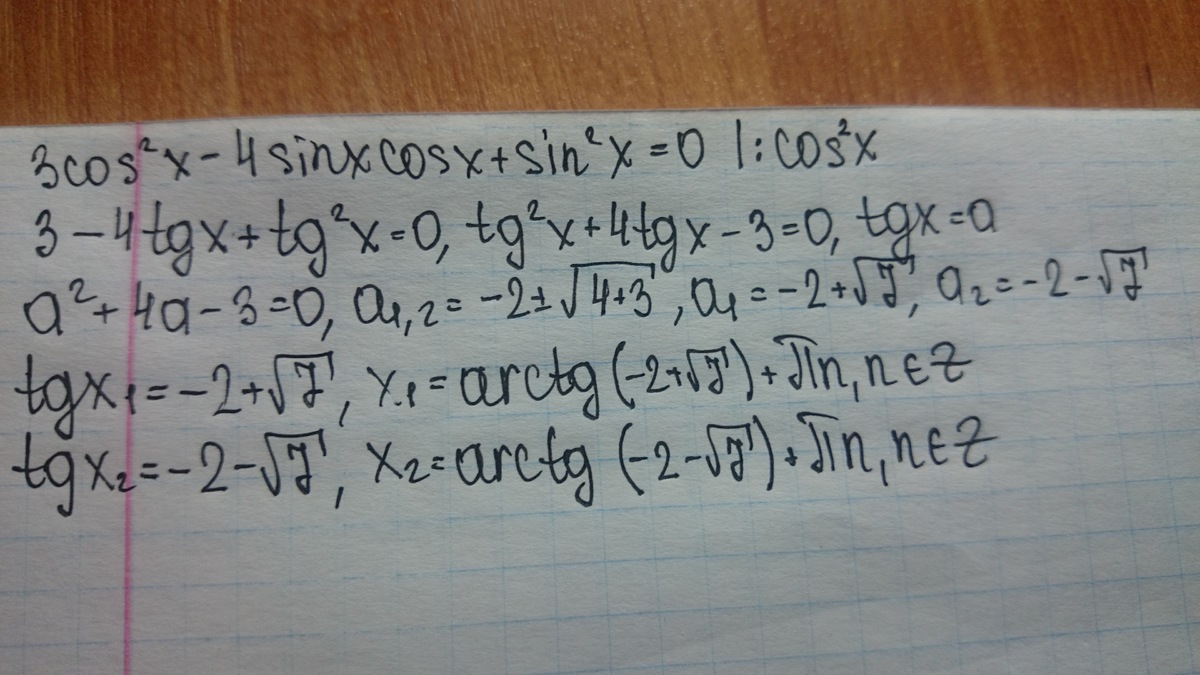 3cos²x - 4sinxcosx + sin²x = 0 |:cos²x
3 - 4tgx + tg²x = 0, tg²x + 4tgx - 3 = 0, tgx = a
a² + 4a - 3 = 0, a₁,₂ = -2 ± √(4+3), a₁ = -2 + √7, a₂ = -2 - √7
tgx₁ = -2 + √7, x₁ = arctg(-2+√7) + πn, n ∈ Z
tgx₂ = -2 - √7, x₂ = arctg(-2-√7) + πn, n ∈ Z